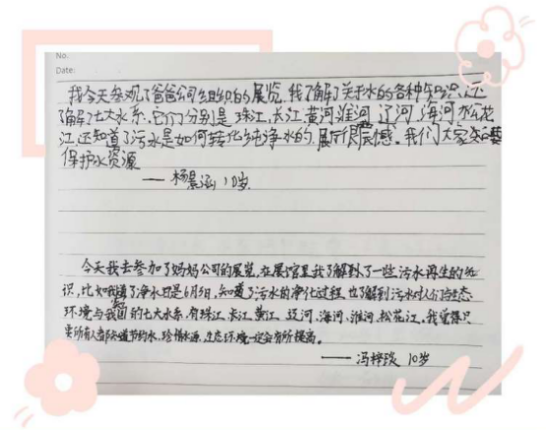 No.
Date:
我今天参观了爸爸公司组织的展览,我了解了关于水的各种知识,还
了解了七大水系,它们分别是珠江、长江、黄河、淮河、辽河、海河、松花
江,还知道了污水是如何转化纯净水的,展厅很震撼。我们大家要
保护水资源
——杨晨 10岁
今天我去参加了妈妈公司的展览,在展馆里我了解到了一些污水再生的知
识,比如知道了净水日是6月5日,知道了污水的净化过程,也了解到污水对人们生态
环境与我国的七大水系,有珠江、长江、黄江、辽河、海河、淮河、松花江,我觉得只
要所有人都知道节约水,珍惜水源,生态环境一定会有所提高。
——冯梓 10岁